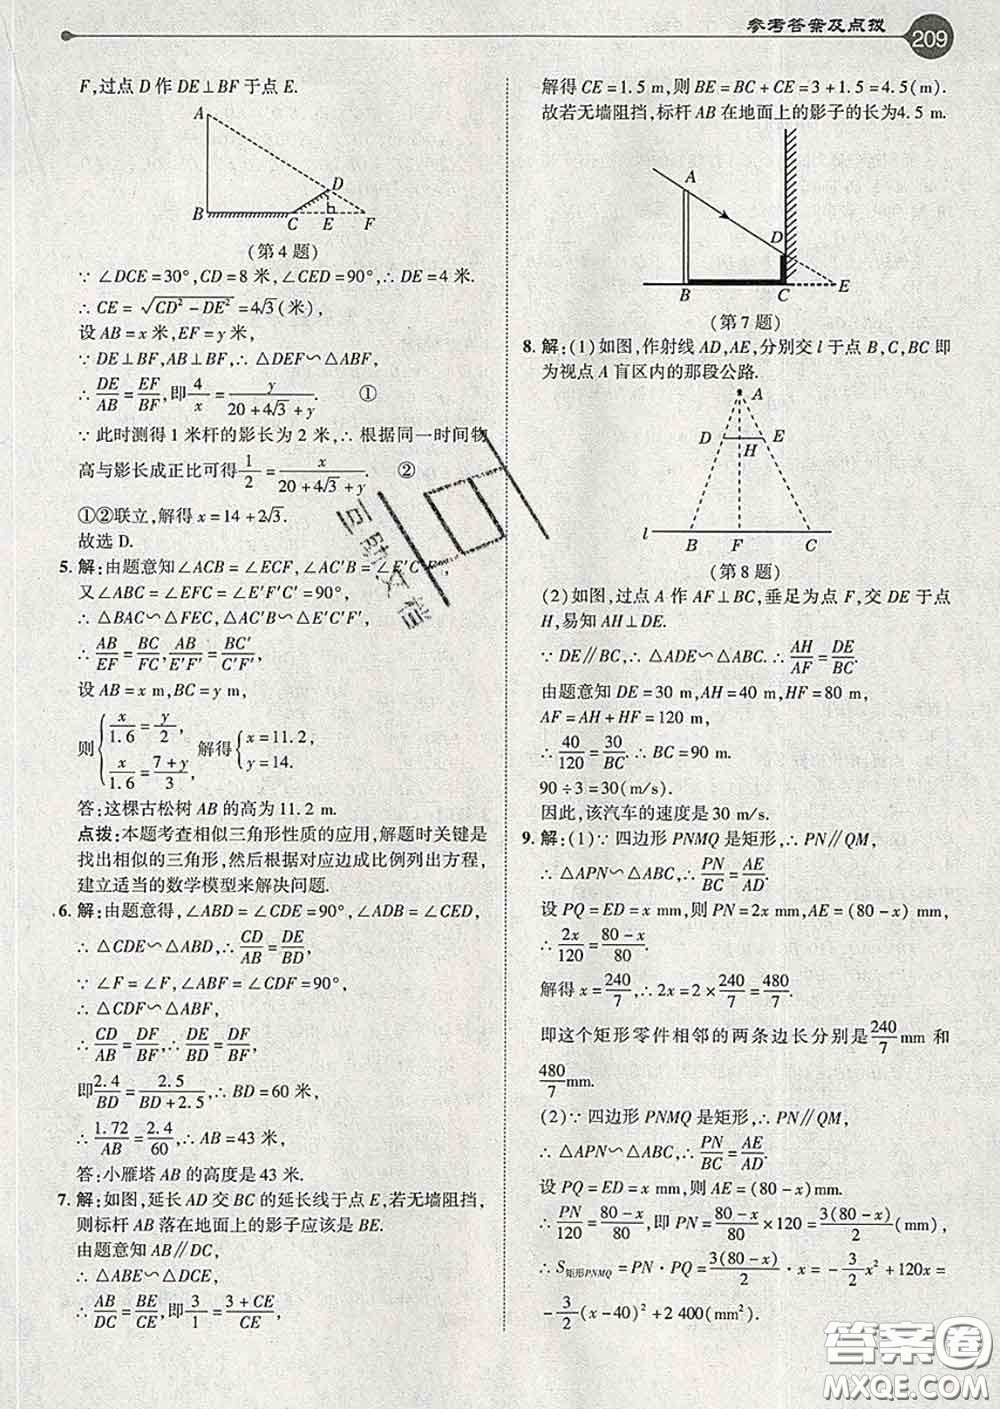 参考答案及点拨 209
F,过点 D 作 DE⊥BF 于点 E.
A
D
B
C
E
F
(第 4 题)
∵ ∠DCE=30°,CD=8 米,∠CED=90°,∴ DE=4 米.
∴ CE=√(CD²-DE²)=4√3(米),
设 AB=x 米,EF=y 米,
∵ DE⊥BF,AB⊥BF,∴ △DEF∽△ABF,
∴ DE/AB=EF/BF,即 4/x=y/(20+4√3+y) ①
∵ 此时测得 1 米杆的影长为 2 米,∴ 根据同一时间物
高与影长成正比可得 1/2=x/(20+4√3+y). ②
①②联立,解得 x=14+2√3.
故选 D.
5. 解:由题意知∠ACB=∠ECF,∠AC'B=∠E'C'F',
又∠ABC=∠EFC=∠E'F'C'=90°,
∴ △BAC∽△FEC,△AC'B∽△E'C'F',
∴ AB/EF=BC/FC,AB/E'F'=BC'/C'F',
设 AB=x m,BC=y m,
则{x/1.6=y/2, x/1.6=(7+y)/3, 解得{x=11.2, y=14.
答:这棵古松树 AB 的高为 11.2 m.
点拨:本题考查相似三角形性质的应用,解题时关键是
找出相似的三角形,然后根据对应边成比例列出方程,
建立适当的数学模型来解决问题.
6. 解:由题意得,∠ABD=∠CDE=90°,∠ADB=∠CED,
∴ △CDE∽△ABD,∴ CD/AB=DE/BD,
∵ ∠F=∠F,∠ABF=∠CDF=90°,
∴ △CDF∽△ABF,
∴ CD/AB=DF/BF,∴ DE/BD=DF/BF,
即 2.4/BD=2.5/(BD+2.5),∴ BD=60 米,
∴ 1.72/AB=2.4/60,∴ AB=43 米,
答:小雁塔 AB 的高度是 43 米.
7. 解:如图,延长 AD 交 BC 的延长线于点 E,若无墙阻挡,
则标杆 AB 落在地面上的影子应该是 BE.
由题意知 AB∥DC,
∴ △ABE∽△DCE,
∴ AB/DC=BE/CE,即 3/1=(3+CE)/CE,
解得 CE=1.5 m,则 BE=BC+CE=3+1.5=4.5(m).
故若无墙阻挡,标杆 AB 在地面上的影子的长为4.5 m.
A
D
B
C
E
(第 7 题)
8. 解:(1)如图,作射线 AD,AE,分别交 l 于点 B,C,BC 即
为视点 A 盲区内的那段公路.
A
D
H
E
l
B
F
C
(第 8 题)
(2)如图,过点 A 作 AF⊥BC,垂足为点 F,交 DE 于点
H,易知 AH⊥DE.
∵ DE∥BC,∴ △ADE∽△ABC.∴ AH/AF=DE/BC.
由题意知 DE=30 m,AH=40 m,HF=80 m,
AF=AH+HF=120 m,
∴ 40/120=30/BC.∴ BC=90 m.
90÷3=30(m/s).
因此,该汽车的速度是 30 m/s.
9. 解:(1)∵ 四边形 PNMQ 是矩形,∴ PN∥QM,
∴ △APN∽△ABC,∴ PN/BC=AE/AD.
设 PQ=ED=x mm,则 PN=2x mm,AE=(80-x) mm,
∴ 2x/120=(80-x)/80.
解得 x=240/7,∴ 2x=2×240/7=480/7.
即这个矩形零件相邻的两条边长分别是 240/7 mm 和
480/7 mm.
(2)∵ 四边形 PNMQ 是矩形,∴ PN∥QM,
∴ △APN∽△ABC,∴ PN/BC=AE/AD.
设 PQ=ED=x mm,则 AE=(80-x)mm.
∴ PN/120=(80-x)/80,即 PN=(80-x)/80×120=3(80-x)/2(mm),
∴ S矩形PNMQ=PN·PQ=3(80-x)/2·x=-3/2x²+120x=
-3/2(x-40)²+2 400(mm²).
互助文档
答案圈
MXQE.COM